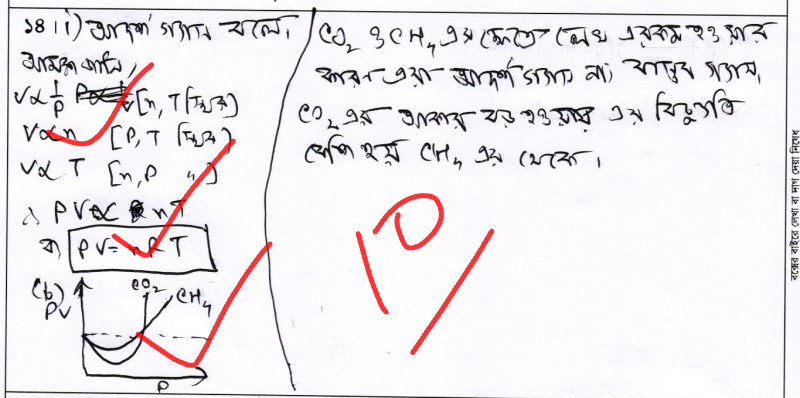 ১৪। i) আদর্শ গ্যাস বলে।
আমরা জানি,
V∝ 1/P [n, T স্থির]
V∝n [P, T স্থির]
V∝ T [n, P 〃]
∴ PV ∝ nT
বা, PV = nRT
(b)
CO2
CH4
PV
P
CO2 ও CH4 এর ক্ষেত্রে লেখ এরকম হওয়ার
কারণ এরা আদর্শ গ্যাস না, বাস্তব গ্যাস,
CO2 এর আকার বড় হওয়ায় এর বিচ্যুতি
বেশি হয় CH4 এর থেকে।
10
বক্সের বাইরে লেখা বা দাগ দেয়া নিষেধ